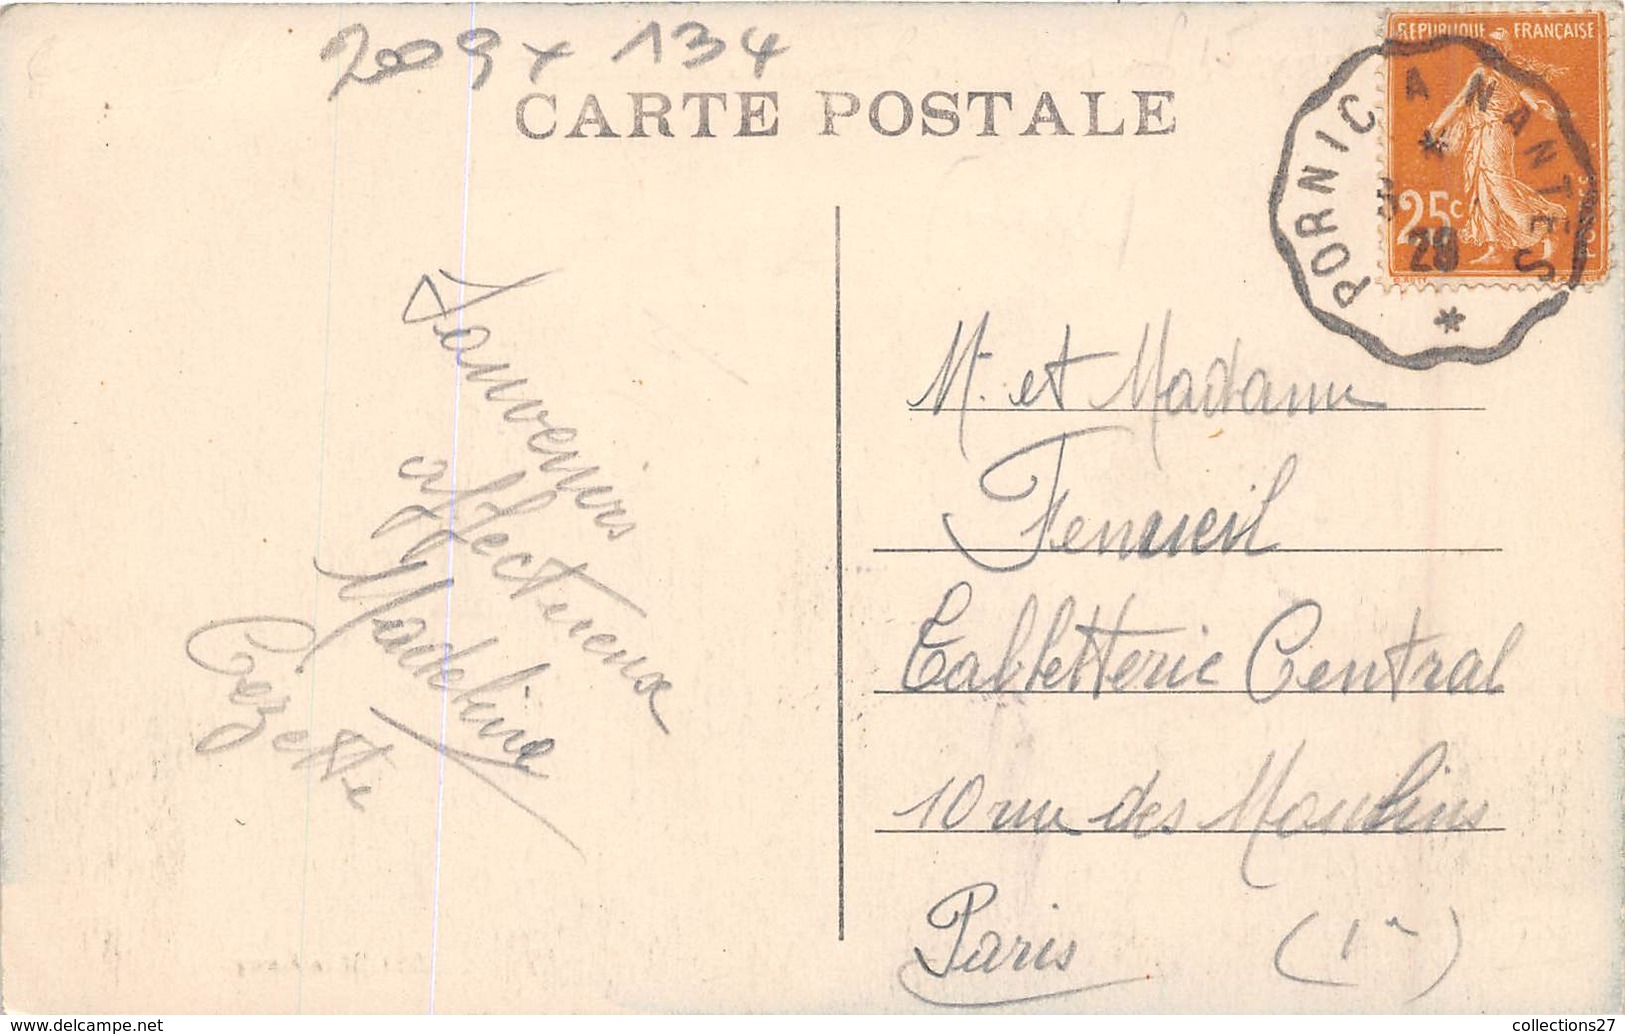 2009 x 134
CARTE POSTALE
REPUBLIQUE FRANÇAISE
25c
PORNIC A NANTES
28
Souvenirs
affectueux
Madeleine
Cezette
M. et Madame
Feneueil
Tabletterie Central
10 rue des Moulins
Paris (1er)
https://www.delcampe.net
collections27